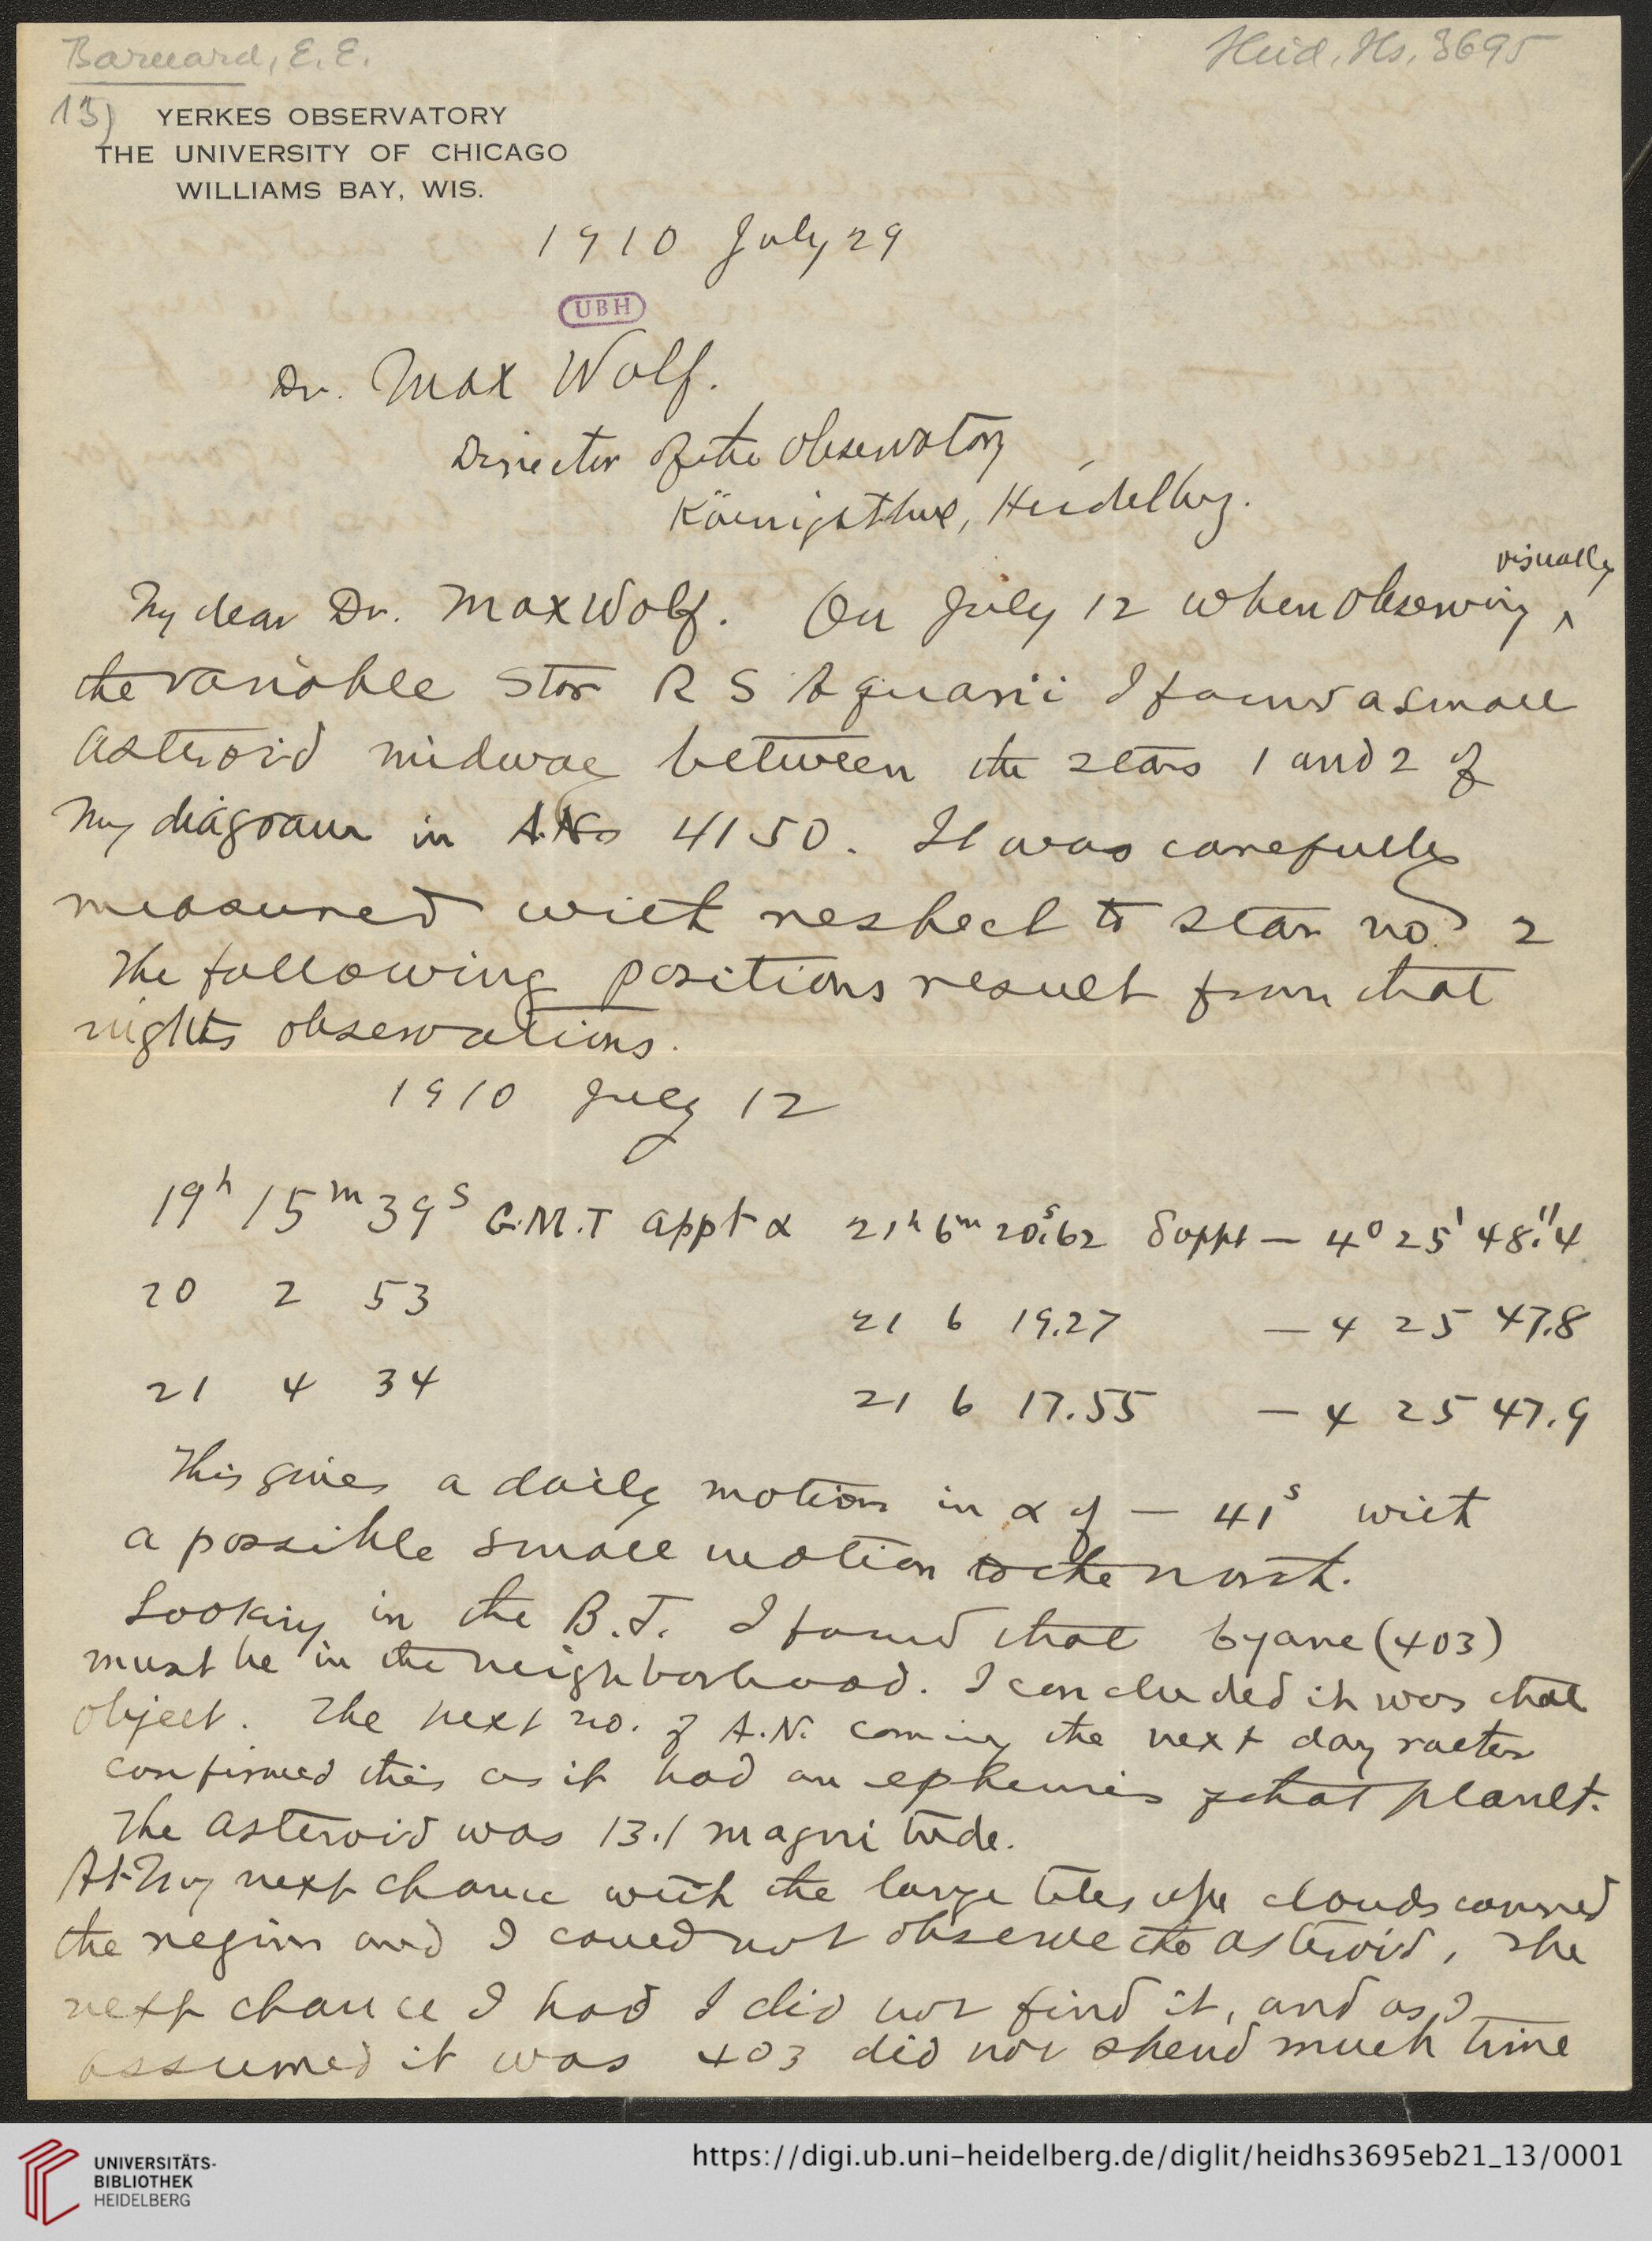 Barnard, E. E.
Heid. Hs. 3695
13)
YERKES OBSERVATORY
THE UNIVERSITY OF CHICAGO
WILLIAMS BAY, WIS.
1910 July 29
UBH
Dr. Max Wolf.
Director of the Observatory
Heidelberg.
visually
My dear Dr. Max Wolf. On July 12 when observing ^
the variable star R S Aquarii I found a small
asteroid midway between the stars 1 and 2 of
my diagram in A.N. 4150. It was carefully
measured with respect to star no. 2
The following positions result from that
nights observations.
1910 July 12
19h 15m 39s G.M.T appt α 21h 6m 20s.62 δ appt — 4° 25' 48".4
20 2 53 21 6 19.27 — 4 25 47.8
21 4 34 21 6 17.55 — 4 25 47.9
This gives a daily motion in α of — 41s with
a possible small motion to the north.
Looking in the B.J. I found that Cyane (403)
must be in the neighborhood. I concluded it was that
object. The next no. of A.N. coming the next day rather
confirmed this as it had an ephemeris of that planet.
The asteroid was 13.1 magnitude.
At my next chance with the large telescope clouds covered
the region and I could not observe the asteroid, The
next chance I had I did not find it, and as I
assumed it was 403 did not spend much time
UNIVERSITÄTS-
BIBLIOTHEK
HEIDELBERG
https://digi.ub.uni-heidelberg.de/diglit/heidhs3695eb21_13/0001